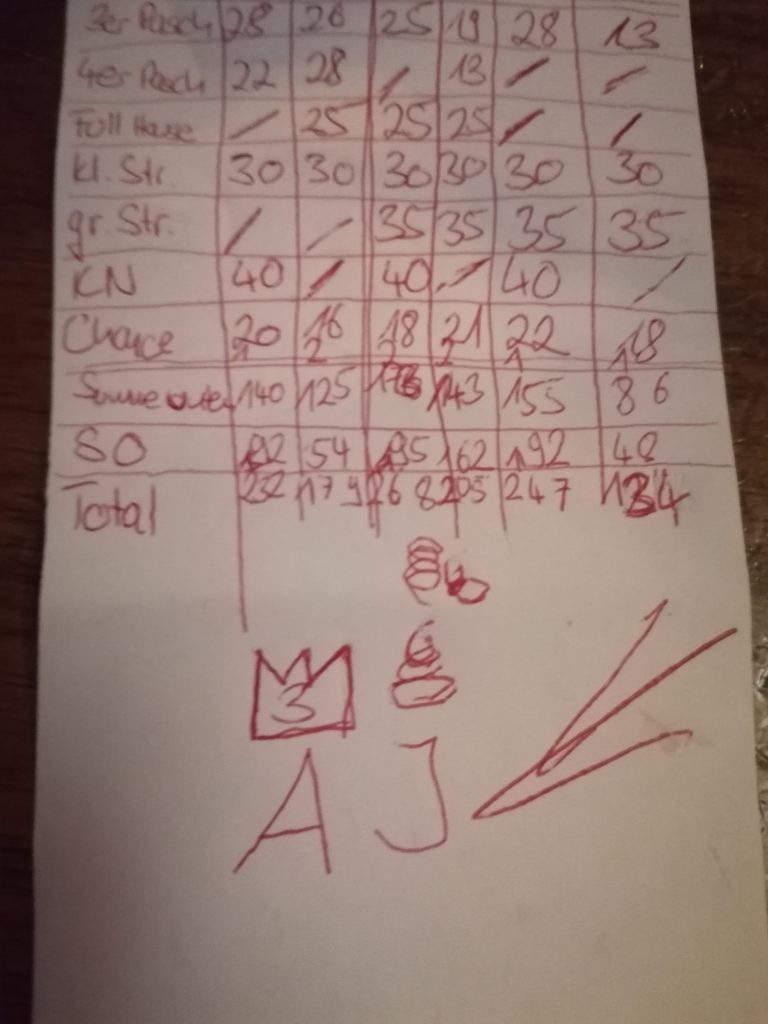 3er Pasch 28 26 25 19 28 13
4er Pasch 22 28 / 13 / /
Full House / 25 25 25 / /
kl. Str. 30 30 30 30 30 30
gr. Str. / / 35 35 35 35
KN 40 / 40 / 40 /
Chance 20 16 18 21 22 18
Summe unten 140 125 173 143 155 86
SO 92 54 95 162 92 48
Total 232 179 268 205 247 134
3
A J